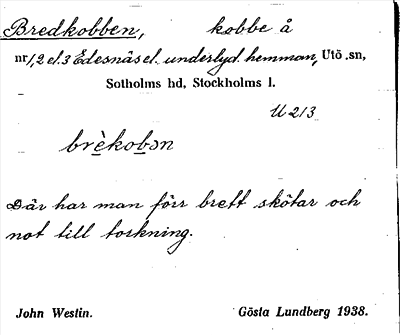 Bredkobben, kobbe å
nr 1, 2 el. 3 Edesnäs el. underlyd. hemman, Utö .sn,
Sotholms hd, Stockholms l.
U 213
brè̱koḇɔn
Där har man förr brett skötar och
not till torkning.
John Westin. Gösta Lundberg 1938.